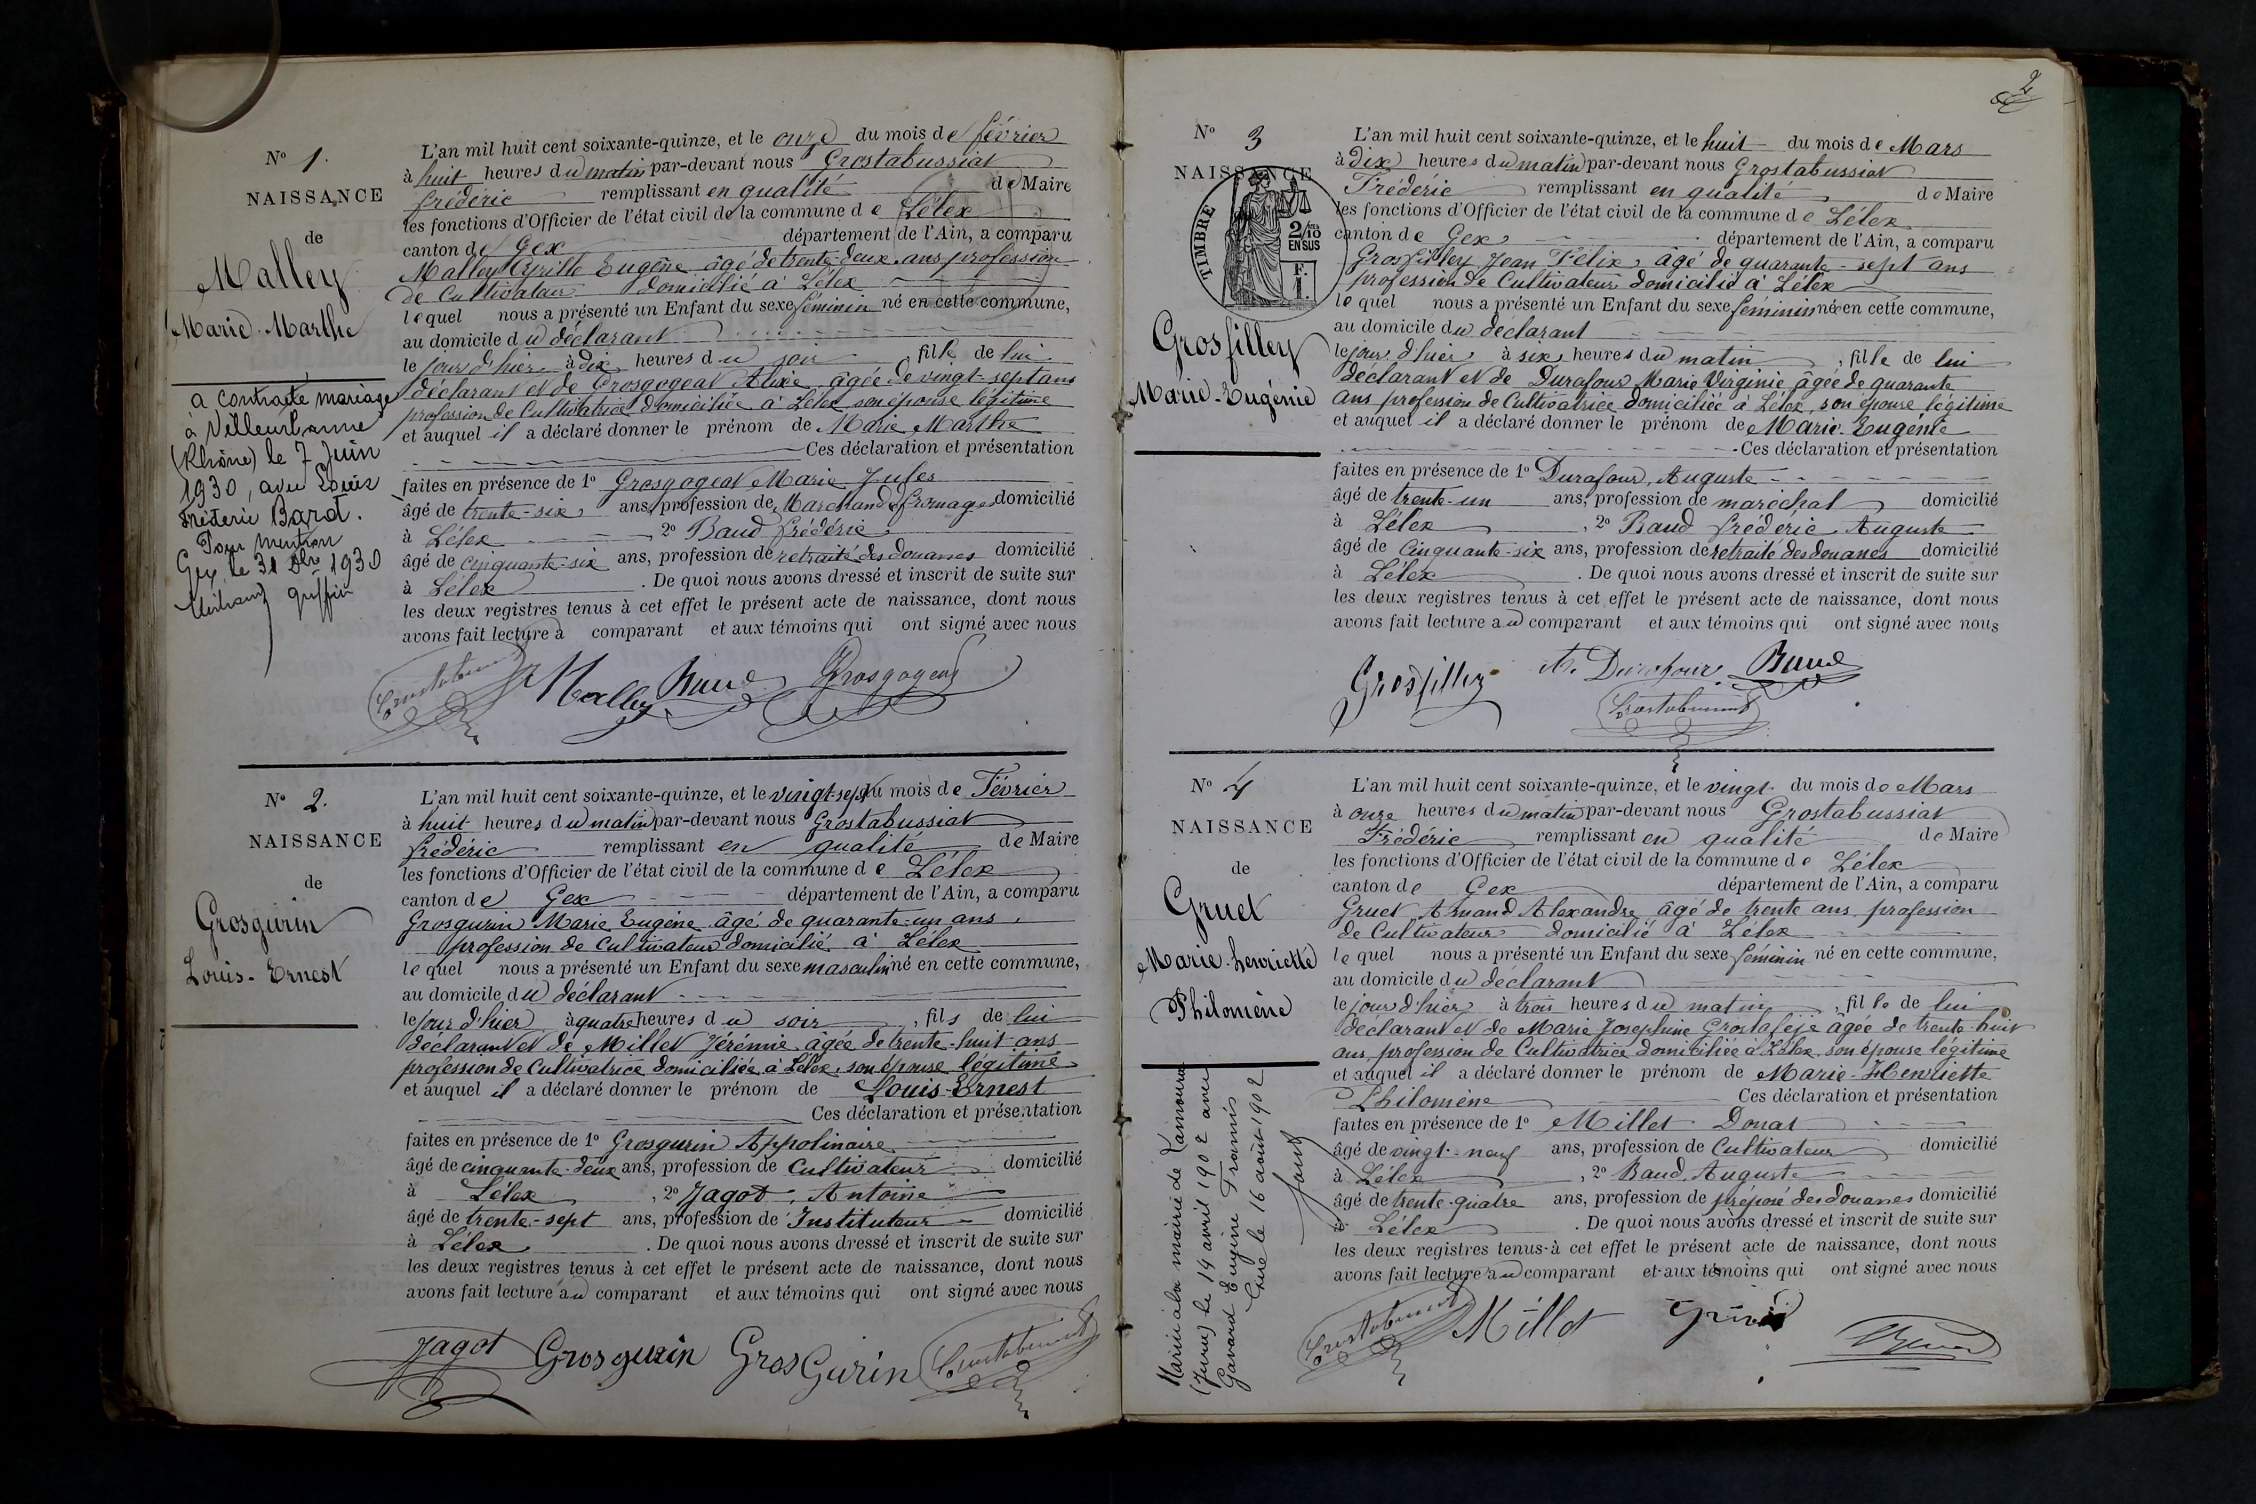 N° 1.
NAISSANCE
de
Malley
Marie-Marthe
a contracté mariage
à Villeurbanne
(Rhône) le 7 Juin
1930, avec Louis
Frédéric Bardt.
Pour mention
Gex, le 31 Xbre 1930
greffier
L'an mil huit cent soixante-quinze, et le onze du mois de février
à huit heures du matin par-devant nous Grostabussiat
frédéric remplissant en qualité de Maire
les fonctions d'Officier de l'état civil de la commune de Lélex
canton de Gex département de l'Ain, a comparu
Malley Cyrille Eugène âgé de trente-deux ans profession
de Cultivateur domicilié à Lélex
lequel nous a présenté un Enfant du sexe féminin né en cette commune,
au domicile du déclarant
le jour d'hier à dix heures du soir, fille de lui
déclarant et de Grosgogeat Alixe âgée de vingt-sept ans
profession de Cultivatrice domiciliée à Lélex son épouse légitime
et auquel il a déclaré donner le prénom de Marie Marthe
Ces déclaration et présentation
faites en présence de 1° Grosgogeat Marie Jules
âgé de trente-six ans, profession de Marchand de fromages domicilié
à Lélex, 2° Baud frédéric
âgé de cinquante-six ans, profession de retraité des douanes domicilié
à Lélex. De quoi nous avons dressé et inscrit de suite sur
les deux registres tenus à cet effet le présent acte de naissance, dont nous
avons fait lecture à comparant et aux témoins qui ont signé avec nous
Grostabussiat Malley Baud Grosgogeat
N° 2.
NAISSANCE
de
Grosgurin
Louis-Ernest
L'an mil huit cent soixante-quinze, et le vingt-sept du mois de Février
à huit heures du matin par-devant nous Grostabussiat
frédéric remplissant en qualité de Maire
les fonctions d'Officier de l'état civil de la commune de Lélex
canton de Gex département de l'Ain, a comparu
Grosgurin Marie Eugène âgé de quarante-un ans,
profession de Cultivateur domicilié à Lélex
lequel nous a présenté un Enfant du sexe masculin né en cette commune,
au domicile du déclarant
le jour d'hier à quatre heures du soir, fils de lui
déclarant et de Millet Jérémie âgée de trente-huit ans
profession de Cultivatrice domiciliée à Lélex, son épouse légitime
et auquel il a déclaré donner le prénom de Louis-Ernest
Ces déclaration et présentation
faites en présence de 1° Grosgurin Appolinaire
âgé de cinquante-deux ans, profession de Cultivateur domicilié
à Lélex, 2° Jagot, Antoine
âgé de trente-sept ans, profession de Instituteur domicilié
à Lélex. De quoi nous avons dressé et inscrit de suite sur
les deux registres tenus à cet effet le présent acte de naissance, dont nous
avons fait lecture au comparant et aux témoins qui ont signé avec nous
Jagot Grosgurin GrosGurin Grostabussiat
2
N° 3
NAISSANCE
TIMBRE
2/10
EN SUS
F.
1.
Grosfilley
Marie-Eugénie
L'an mil huit cent soixante-quinze, et le huit du mois de Mars
à Dix heures du matin par-devant nous Grostabussiat
Frédéric remplissant en qualité de Maire
les fonctions d'Officier de l'état civil de la commune de Lélex
canton de Gex département de l'Ain, a comparu
Grosfilley Jean Félix, âgé de quarante-sept ans
profession de Cultivateur domicilié à Lélex
lequel nous a présenté un Enfant du sexe féminin né en cette commune,
au domicile du déclarant
le jour d'hier à six heures du matin, fille de lui
déclarant et de Durafour Marie Virginie âgée de quarante
ans profession de Cultivatrice domiciliée à Lélex, son épouse légitime
et auquel il a déclaré donner le prénom de Marie-Eugénie
Ces déclaration et présentation
faites en présence de 1° Durafour, Auguste
âgé de trente-un ans, profession de maréchal domicilié
à Lélex, 2° Baud frédéric Auguste
âgé de Cinquante-six ans, profession de retraité des douanes domicilié
à Lélex. De quoi nous avons dressé et inscrit de suite sur
les deux registres tenus à cet effet le présent acte de naissance, dont nous
avons fait lecture au comparant et aux témoins qui ont signé avec nous
Grosfilley A. Durafour Baud
Grostabussiat
N° 4
NAISSANCE
de
Gruet
Marie-henriette
Philomène
Mariée à la mairie de Lamoura
(Jura) le 14 avril 1902 avec
Gavard Eugène Francois
Gex le 16 août 1902
L'an mil huit cent soixante-quinze, et le vingt du mois de Mars
à onze heures du matin par-devant nous Grostabussiat
Frédéric remplissant en qualité de Maire
les fonctions d'Officier de l'état civil de la commune de Lélex
canton de Gex département de l'Ain, a comparu
Gruet Armand Alexandre âgé de trente ans profession
de Cultivateur domicilié à Lélex
lequel nous a présenté un Enfant du sexe féminin né en cette commune,
au domicile du déclarant
le jour d'hier à trois heures du matin, fille de lui
déclarant et de Marie Josephine Grostaféjé âgée de trente-huit
ans, profession de Cultivatrice domiciliée à Lélex son épouse légitime
et auquel il a déclaré donner le prénom de Marie-Henriette
Philomène Ces déclaration et présentation
faites en présence de 1° Millet Donat
âgé de vingt-neuf ans, profession de Cultivateur domicilié
à Lélex, 2° Baud, Auguste
âgé de trente-quatre ans, profession de préposé des douanes domicilié
à Lélex. De quoi nous avons dressé et inscrit de suite sur
les deux registres tenus à cet effet le présent acte de naissance, dont nous
avons fait lecture au comparant et aux témoins qui ont signé avec nous
Grostabussiat Millet